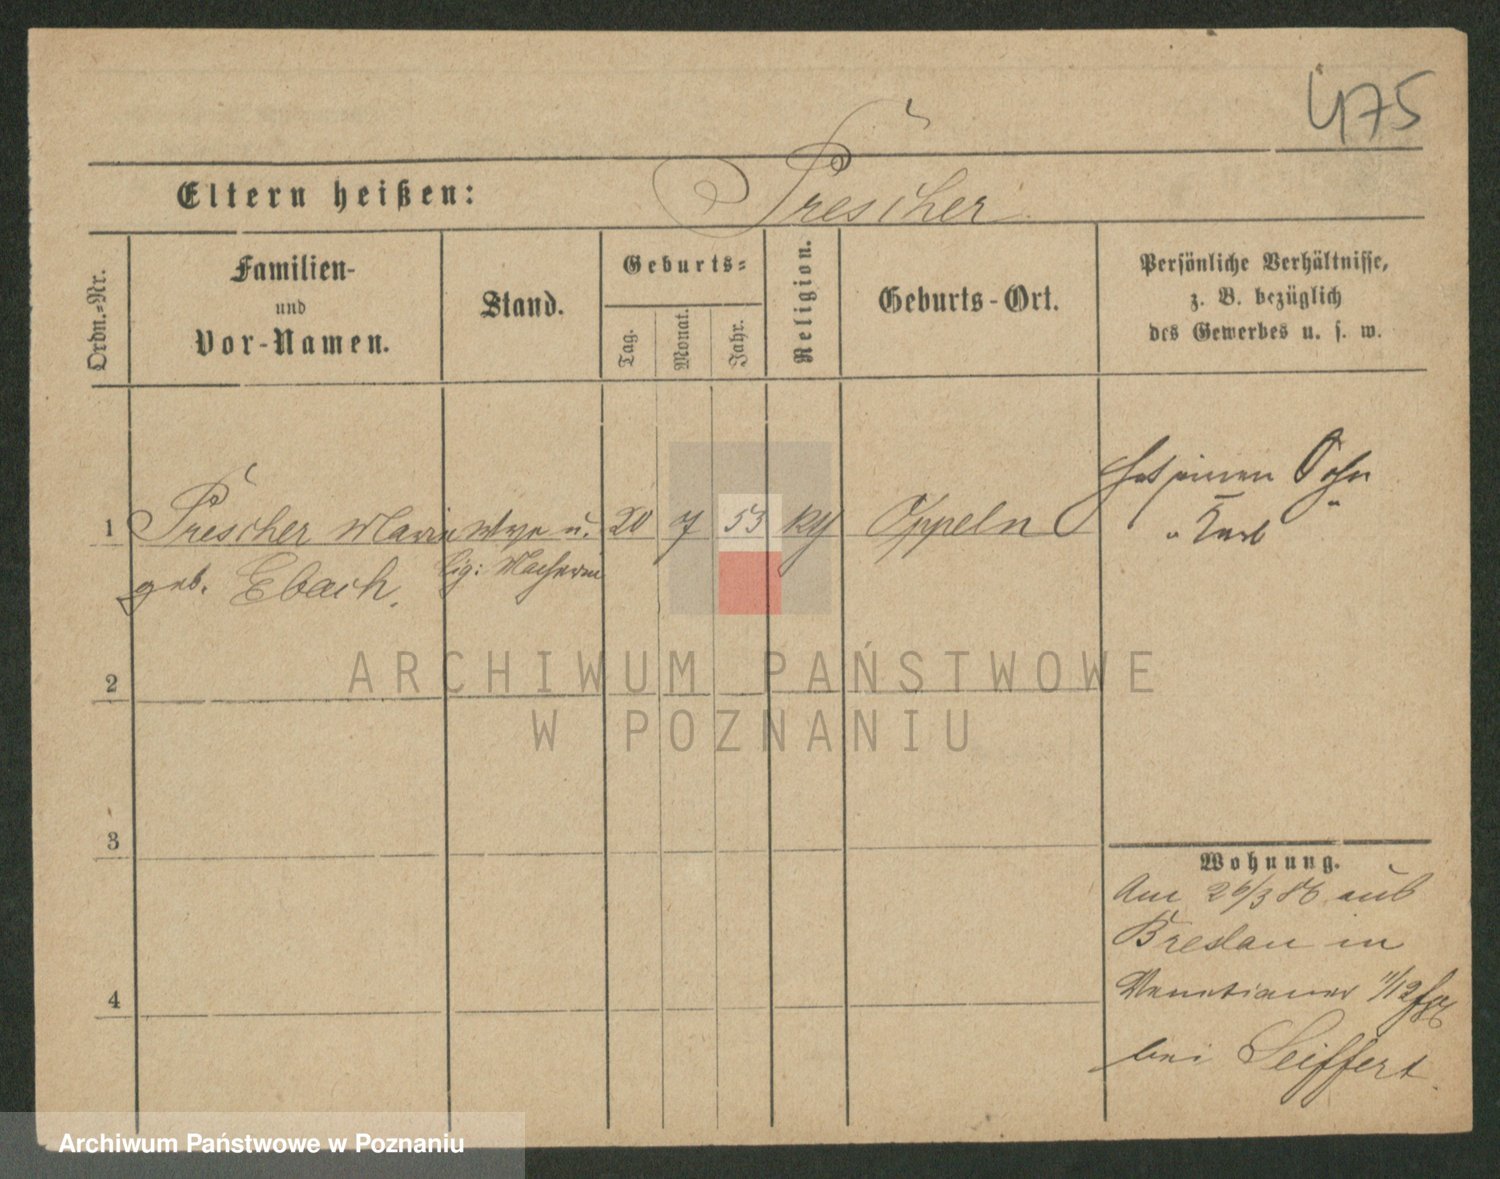 475
Eltern heißen: Prescher
Ordn.-Nr.
Familien-
und
Vor-Namen.
Stand.
Geburts-
Tag.
Monat.
Jahr.
Religion.
Geburts-Ort.
Persönliche Verhältnisse,
z. B. bezüglich
des Gewerbes u. s. w.
hat einen Sohn
"Karl"
1 Prescher Marie Wwe u. 20 7 53 Oppeln
geb. Ebach.
2
3
4
ARCHIWUM PAŃSTWOWE
W POZNANIU
Wohnung.
Am 26/3 86 aus
Breslau in
Venetianer 11/12
bei Seiffert.
Archiwum Państwowe w Poznaniu